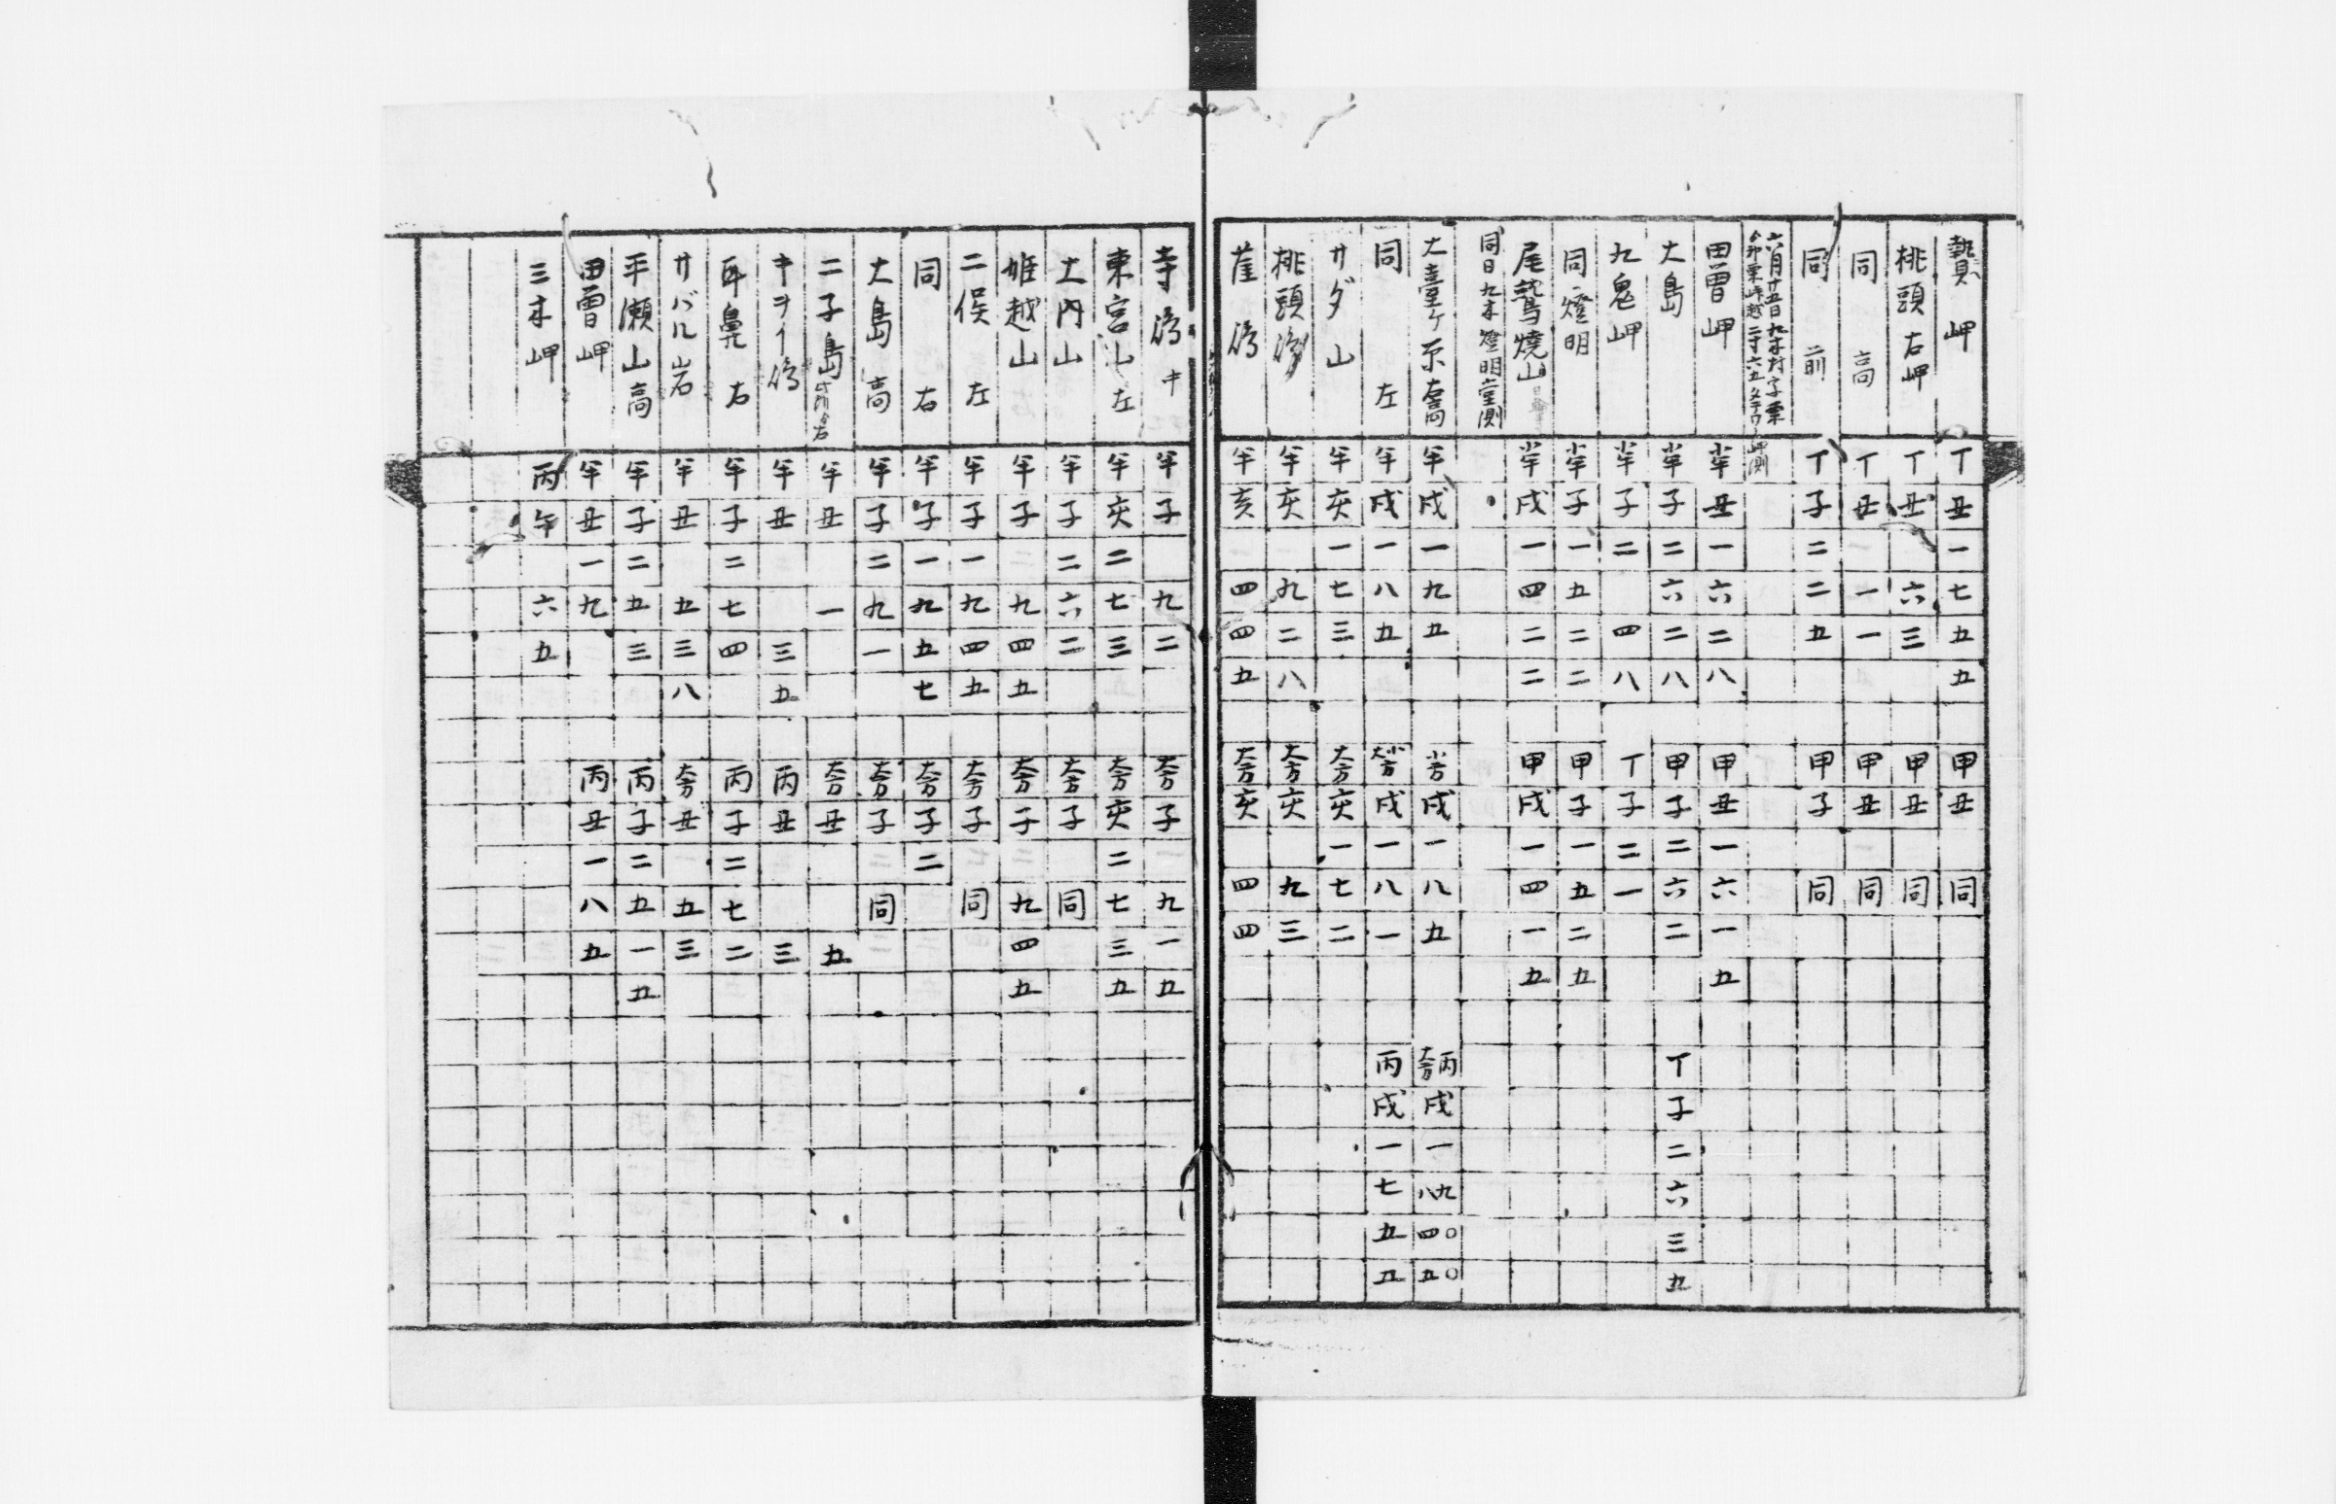 贄岬 丁丑一七五五 甲丑同
桃頭右岬 丁丑 六三 甲丑同
同高 丁丑 一一 甲丑同
同前 丁子二二五 甲子同
六月廿五日九木村字栗
田曽岬 半丑一六二八 甲丑一六一五
大島 半子二六二八 甲子二六二 丁子二六三五
九鬼岬 半子二 四八 丁子二一
同燈明 半子一五二二 甲子一五二五
尾鷲燒山 半戌一四二二 甲戌一四一五
同日九木燈明堂側
大臺ケ原右高 半戌一九五 戌一八五 丙戌一八九四〇五〇
同左 半戌一八五 戌一八一 丙戌一七五五
サダ山 半亥一七三 大方亥一七二
桃頭 半亥 九二八 大方亥 九三
半亥 四四五 大方亥 四四
寺 中 半子 九二 大方子 九一五
東宮山左 半亥二七三 大方亥二七三五
大内山 半子二六二 大方子同
姫越山 半子 九四五 大方子 九四五
二俣左 半子一九四五 大方子同
同右 半子一九五七 大方子二
大島高 半子二九一 大方子同
二子島 半丑 一 大方丑 五
キヲイ 半丑 三五 丙丑 三
耳鼻右 半子二七四 丙子二七二
サバル岩 半丑 五三八 大方丑 五三
平瀬山高 半子二五三 丙子二五一五
田曽岬 半丑一九 丙丑一八五
三木岬 丙午 六五